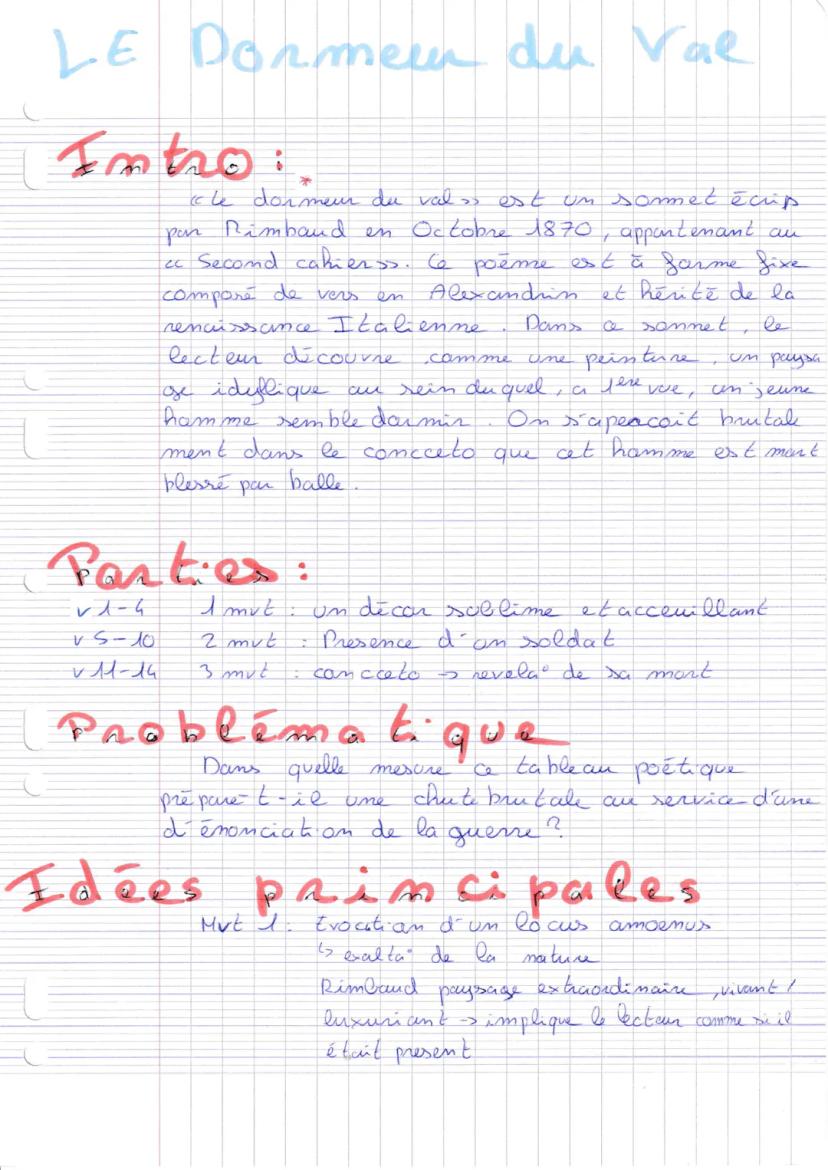 LE Dormeur du Val
Intro : *
« Le dormeur du val » est un sonnet écrip
par Rimbaud en Octobre 1870, appartenant au
« Second cahier ». Ce poème est à forme fixe
composé de vers en Alexandrin et hérité de la
renaissance Italienne. Dans ce sonnet, le
lecteur découvre comme une peinture, un paysa
ge idyllique au sein duquel, a 1ere vue, un jeune
homme semble dormir. On s'apercoit brutale
ment dans le concceto que cet homme est mort
blessé par balle.
Parties :
v 1-4 1 mvt : un décor sublime et acceuillant
v 5-10 2 mvt : Presence d'un soldat
v 11-14 3 mvt : concceto → revela° de sa mort
Problématique
Dans quelle mesure ce tableau poétique
prépare-t-il une chute brutale au service d'une
d'énonciation de la guerre ?
Idées principales
Mvt 1 : Evocation d'un locus amoenus
↳ exalta° de la nature
Rimbaud paysage extraordinaire, vivant /
luxuriant → implique le lecteur comme si il
était present